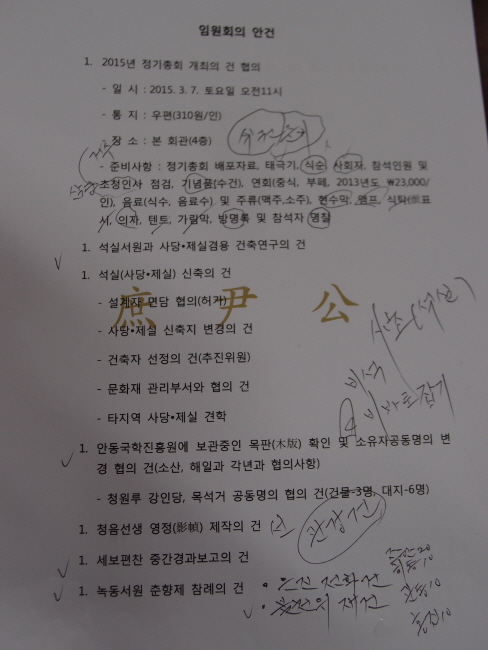 임원회의 안건
1. 2015년 정기총회 개최의 건 협의
- 일 시 : 2015. 3. 7. 토요일 오전11시
- 통 지 : 우편(310원/인)
- 장 소 : 본 회관(4층)
- 준비사항 : 정기총회 배포자료, 태극기, 식순, 사회자, 참석인원 및
초청인사 점검, 기념품(수건), 연회(중식, 부페, 2013년도 ₩23,000/
인), 음료(식수, 음료수) 및 주류(맥주,소주), 현수막, 앰프, 식탁(좌표
시, 의자, 텐트, 가림막, 방명록 및 참석자 명찰
1. 석실서원과 사당•제실겸용 건축연구의 건
1. 석실(사당•제실) 신축의 건
- 설계자 면담 협의(허가)
庶尹公
- 사당•제실 신축지 변경의 건
- 건축자 선정의 건(추진위원)
- 문화재 관리부서와 협의 건
- 타지역 사당•제실 견학
비석
바로잡기
1. 안동국학진흥원에 보관중인 목판(木版) 확인 및 소유자공동명의 변
경 협의 건(소산, 해일과 각년과 협의사항)
- 청원루 강인당, 목석거 공동명의 협의 건(건물-3명, 대지-6명)
1. 청음선생 영정(影幀) 제작의 건
1. 세보편찬 중간경과보고의 건
1. 녹동서원 춘향제 참례의 건